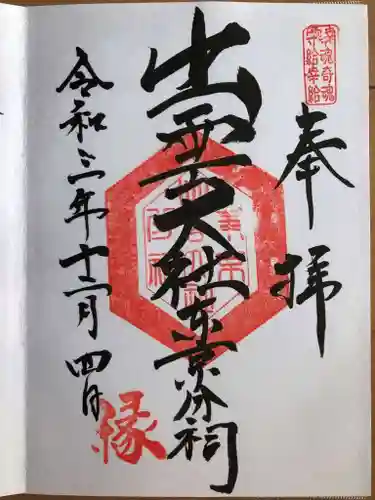 幸魂奇魂
守給幸給
奉拝
出雲大社東京分祠
令和三年十二月四日
縁